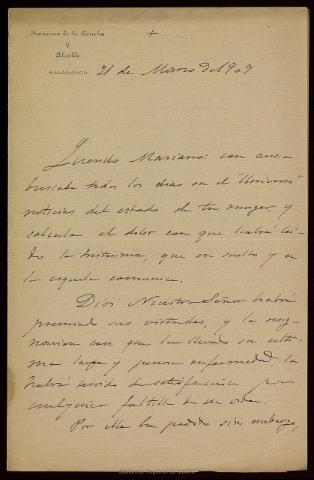 Francisco de la Concha
y
Alcalde
SALAMANCA
+
21 de Marzo de 1909
Querido Mariano: con an
buscaba todos los dias en el "Universo"
noticias del estado de tu mujer, y
calcula el dolor con que habré leí
do la tristisima, que en suelto y en
la esquela comunica.
Dios Nuestro Señor habrá
premiado sus virtudes, y la resig
nacion con que ha llevado su ulti
ma larga y penosa enfermedad la
habrá servido de satisfaccion por
cualquier faltilla de su vida.
Por ella he pedido sin embargo,